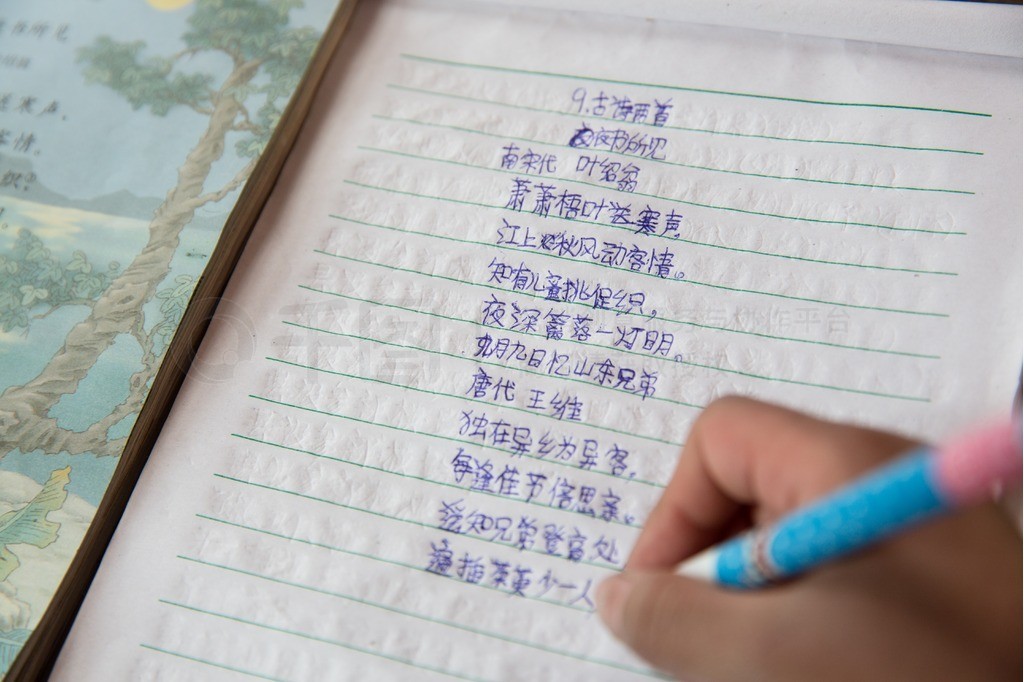 9.古诗两首
夜书所见
南宋代 叶绍翁
萧萧梧叶送寒声,
江上秋风动客情。
知有儿童挑促织,
夜深篱落一灯明。
九月九日忆山东兄弟
唐代 王维
独在异乡为异客,
每逢佳节倍思亲。
知兄弟登高处
遍插茱萸少一人
寒声,
客情。
织?